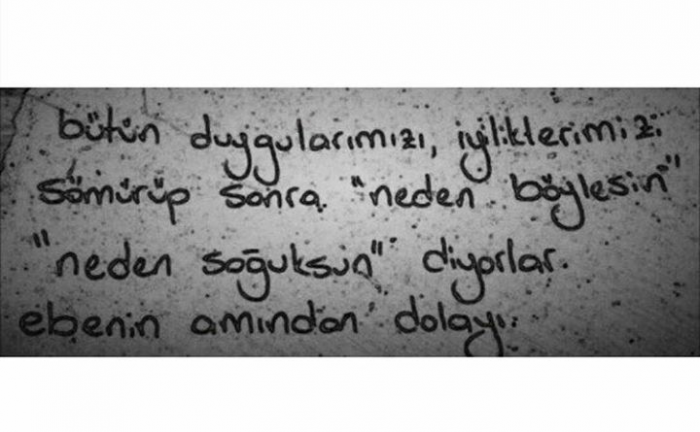 bütün duygularımızı, iyiliklerimizi
sömürüp sonra "neden böylesin"
"neden soğuksun" diyorlar.
ebenin amından dolayı.